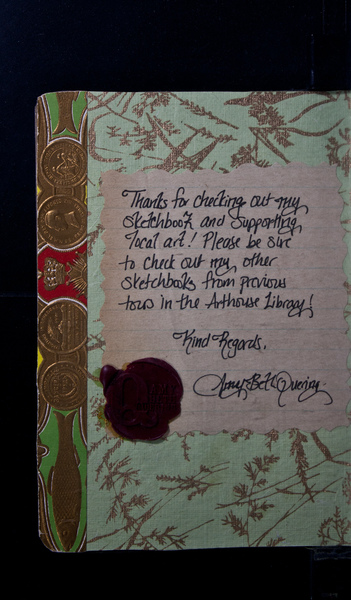 Thanks for checking out my
Sketchbook and supporting
local art! Please be sure
to check out my other
sketchbooks from previous
tours in the Arthouse Library!
Kind Regards,
Amy Beth